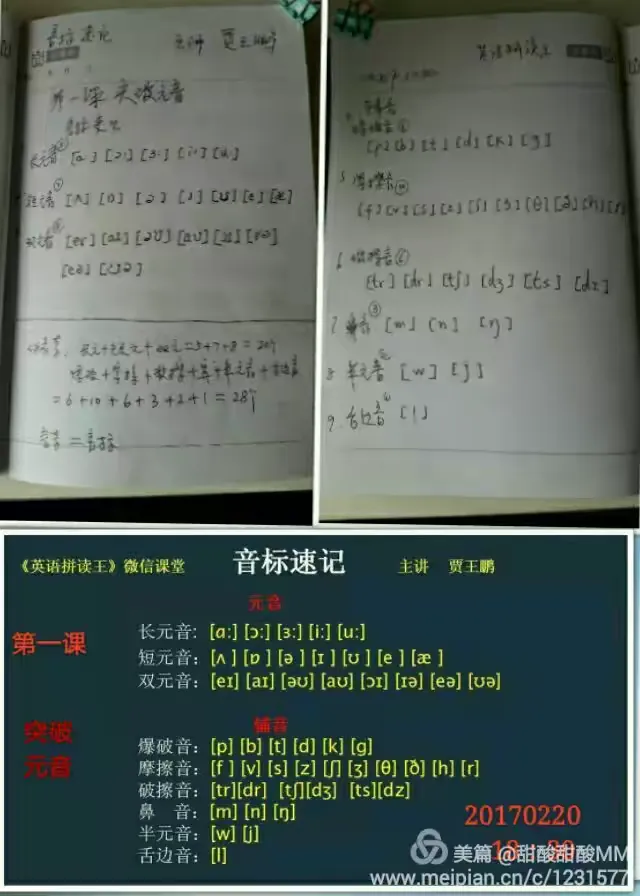 音标速记 主讲 贾王鹏
第一课 突破元音
长元音⑤ [ɑː] [ɔː] [ɜː] [iː] [uː]
短元音⑦ [ʌ] [ɒ] [ə] [ɪ] [ʊ] [e] [æ]
双元音⑧ [eɪ] [aɪ] [əʊ] [aʊ] [ɔɪ] [ɪə]
[eə] [ʊə]
=5+7+8=20个
=6+10+6+3+2+1=28个
英语拼读王
[p] [b] [t] [d] [k] [g]
[f] [v] [s] [z] [ʃ] [ʒ] [θ] [ð] [h] [r]
[tr] [dr] [tʃ] [dʒ] [ts] [dz]
7 鼻音③ [m] [n] [ŋ]
8 半元音② [w] [j]
9. 舌边音① [l]
《英语拼读王》微信课堂 音标速记 主讲 贾王鹏
元音
第一课
长元音: [ɑː] [ɔː] [ɜː] [iː] [uː]
短元音: [ʌ ] [ɒ ] [ə ] [ɪ ] [ʊ ] [e ] [æ ]
双元音: [eɪ] [aɪ] [əʊ] [aʊ] [ɔɪ] [ɪə] [eə] [ʊə]
突破
元音
辅音
爆破音: [p] [b] [t] [d] [k] [g]
摩擦音: [f ] [v] [s] [z] [ʃ] [ʒ] [θ] [ð] [h] [r]
破擦音: [tr][dr] [tʃ][dʒ] [ts][dz]
鼻 音: [m] [n] [ŋ]
半元音: [w] [j]
舌边音: [l]
20170220
美篇 @甜酸甜酸MM
www.meipian.cn/c/1231577